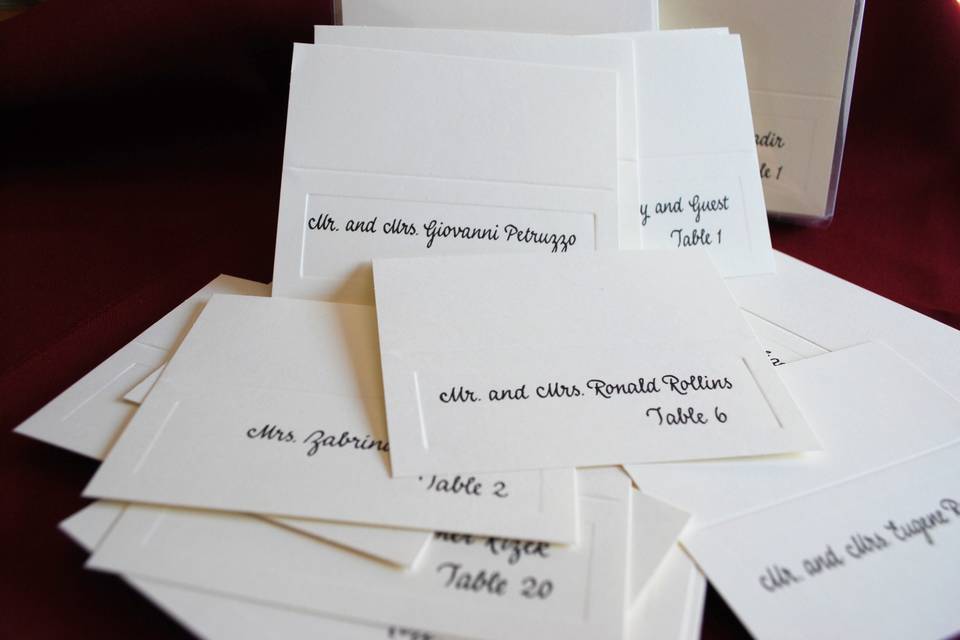 Mr. and Mrs. Giovanni Petruzzo
and Guest
Table 1
1
Mr. and Mrs. Ronald Rollins
Table 6
Mrs.
Table 2
Rizek
Table 20
Mr. and Mrs Eugene